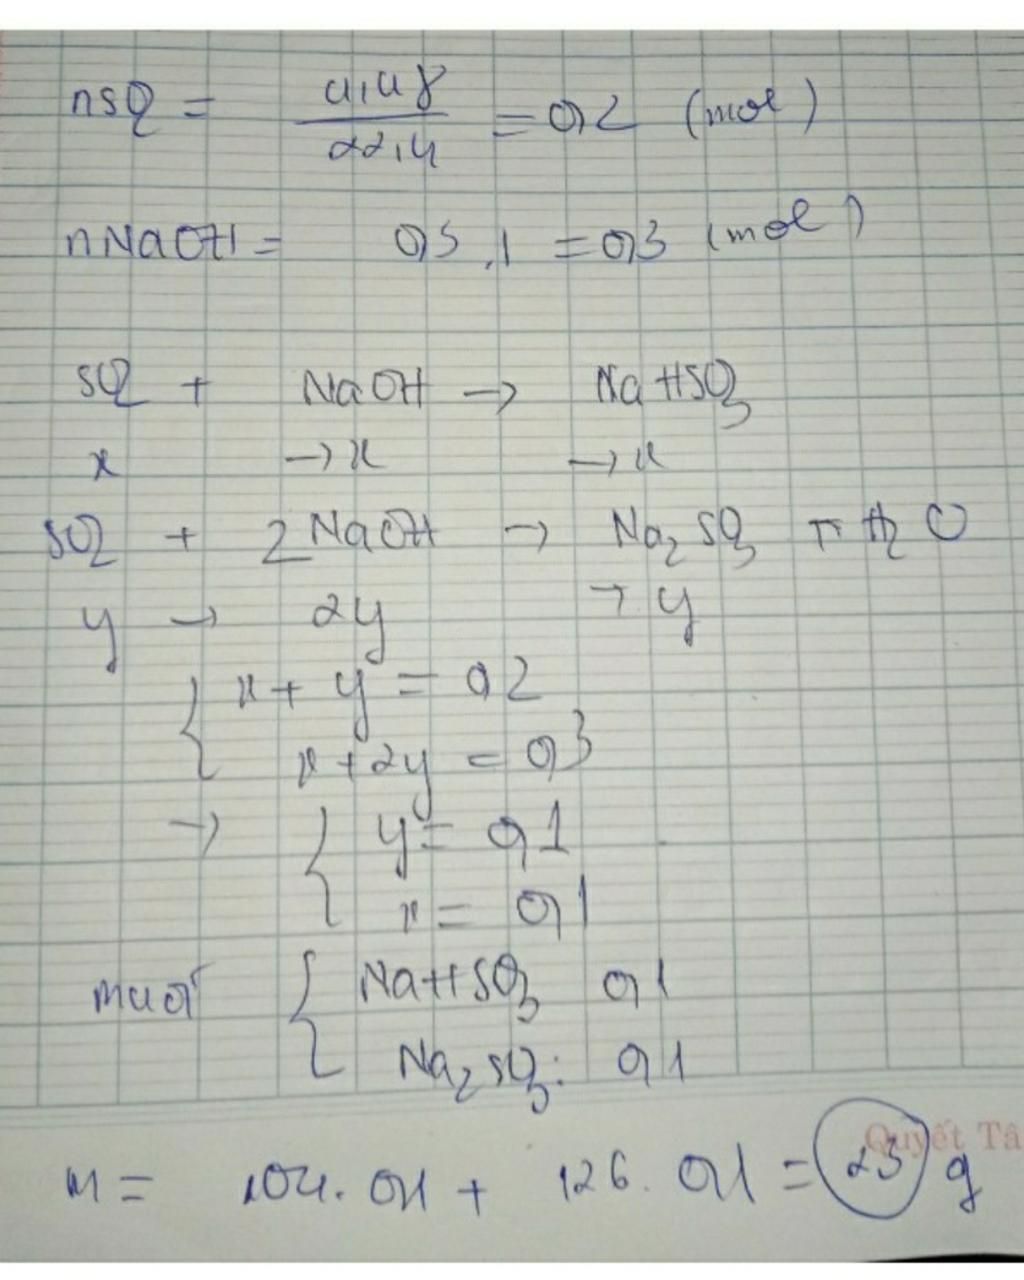 nSO2 = 4,48/22,4 = 0,2 (mol)
nNaOH = 0,3 . 1 = 0,3 (mol)
SO2 + NaOH → NaHSO3
x → x → x
SO2 + 2NaOH → Na2SO3 + H2O
y → 2y → y
{ x + y = 0,2
x + 2y = 0,3
→ { y = 0,1
x = 0,1
muối { NaHSO3 0,1
Na2SO3: 0,1
Quyết Tâ
m = 104. 0,1 + 126. 0,1 = 23 g